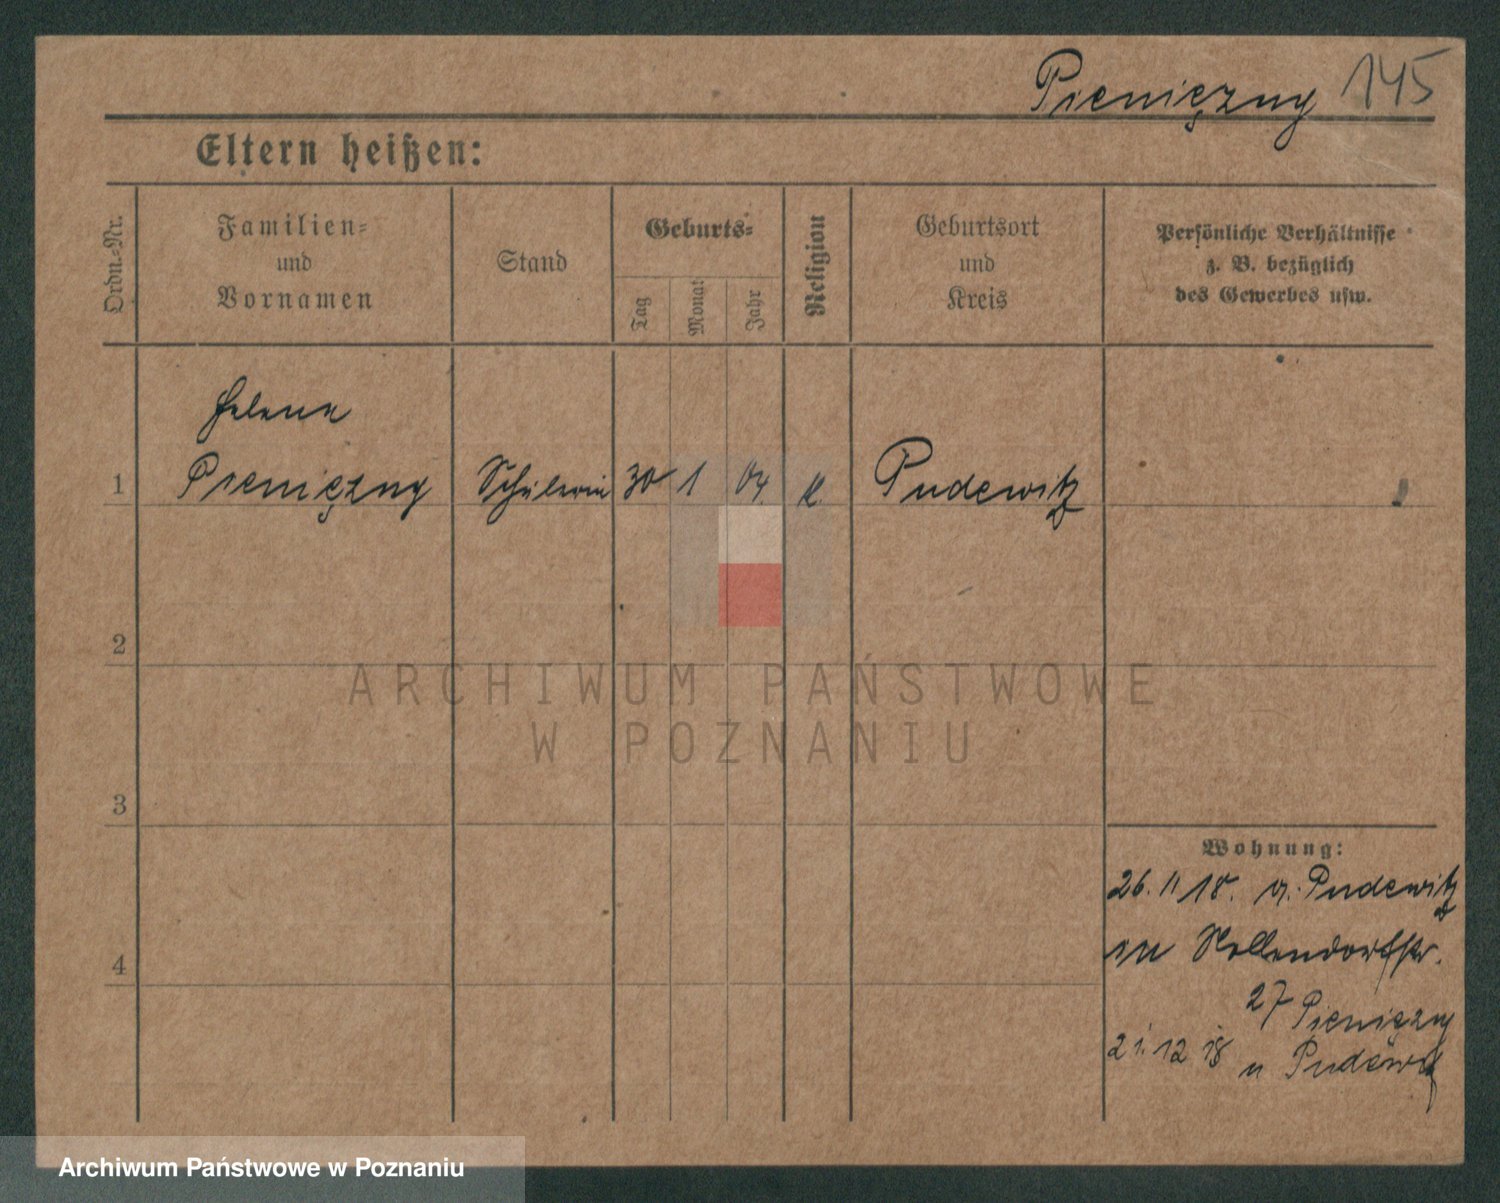 Pieniężny 145
Eltern heißen:
Ordn.-Nr.
Familien-
und
Vornamen
Stand
Geburts-
Tag
Monat
Jahr
Religion
Geburtsort
und
Kreis
Persönliche Verhältnisse
z. B. bezüglich
des Gewerbes usw.
Helena
1 Pieniężny Schülerin 30 1 04. k. Pudewitz
2
3
4
Wohnung:
26. 11 18. v. Pudewitz
27 Pieniężny
21. 12 18 n Pudewitz
ARCHIWUM PAŃSTWOWE
W POZNANIU
Archiwum Państwowe w Poznaniu